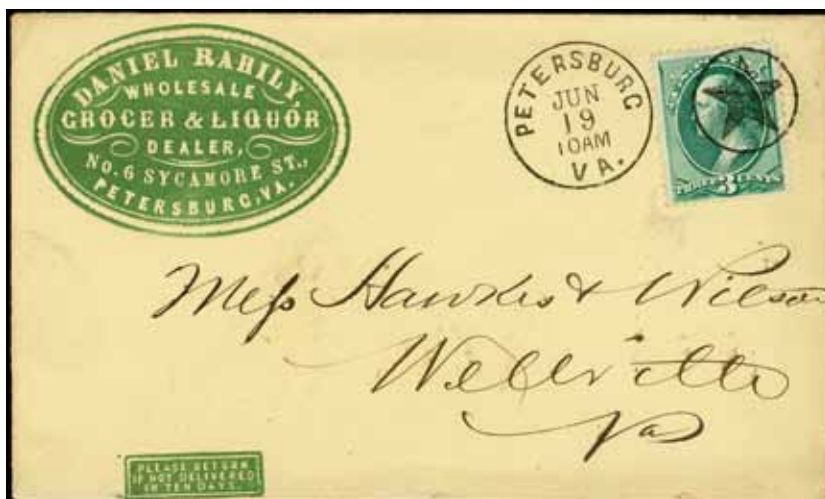 DANIEL RAHILY,
WHOLESALE
GROCER & LIQUOR
DEALER,
No. 6 SYCAMORE ST.,
PETERSBURG, VA.
PETERSBURG
JUN
19
10AM
VA.
THREE 3 CENTS
Mess Hawkes & Wilson
Wellville
Va
PLEASE RETURN
IF NOT DELIVERED
IN TEN DAYS.